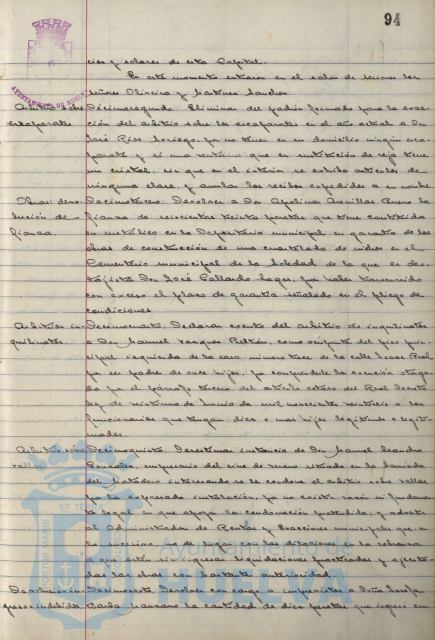 94
cies y solares de esta Capital.
En este momento entraron en el salón de sesiones los
señores Oliveira y Martínez Sánchez
Arbitrio sobre Décimosegundo. Eliminar del padrón formado para la exac-
escaparates ción del arbitrio sobre los escaparates en el año actual a Don
José Ríos Noriega, pues no tener en su domicilio ningún esca-
parate y sí una ventana que en sustitución de reja tiene
un cristal, sin que en el interior se exhiba artículos de
ninguna clase, y anular los recibos expedidos a su nombre
Devolución de Décimotercero. Devolver a Don Apolinar Arenillas Bueno la
fianza. fianza de seiscientas treinta pesetas que tiene constituida
en metálico en la Depositaría municipal en garantía de las
obras de construcción de una cuartelada de nichos en el
Cementerio municipal de la Soledad de la que es des-
tajista Don José Gallardo Lagos, por haber transcurrido
con exceso el plazo de garantía señalado en el pliego de
condiciones
Arbitrio in- Décimocuarto. Declarar exento del arbitrio de inquilinatos
quilinatos. a Don Manuel Vázquez Beltrán, como ocupante del piso prin-
cipal izquierda de la casa número trece de la calle Isaac Peral
por ser padre de once hijos, por comprenderle la exención otorga-
da por el párrafo tercero del artículo octavo del Real Decreto
Ley de veintiuno de Junio de mil novecientos veintiséis a los
funcionarios que tengan diez o más hijos legítimos o legiti-
mados
Arbitrio sobre Décimoquinto. Desestimar instancia de Don Manuel Leandro
vallas González, empresario del cine de verano situado en la barriada
del Matadero interesando se le condone el arbitrio sobre vallas
por la expresada instalación, pues no existe razón ni fundamen-
to legal en que apoyar la condonación pretendida, y advertir
al Administrador de Rentas y Exacciones municipales que, en
lo sucesivo no dé lugar con las dilaciones en la cobranza
a que estén sin ingresar liquidaciones practicadas y ejecuta-
das las obras con bastante anterioridad.
Devolución in- Décimosexto. Devolver con cargo a imprevistos a Doña Josefa
gresos indebidos. la cantidad de diez pesetas que ingresó en
AYUNTAMIENTO DE HUELVA
PORTUS MARIS ET TERRAE
Ayuntamiento de
HUELVA